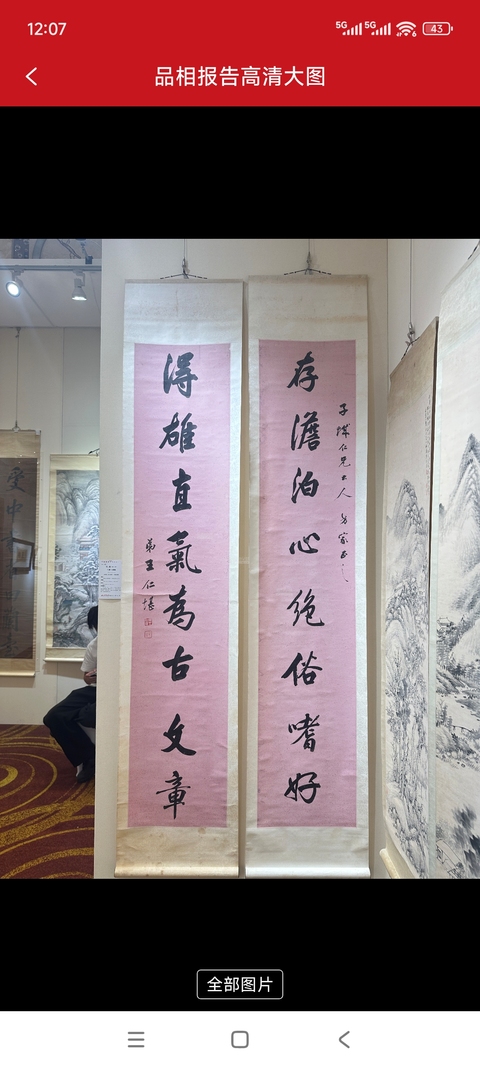 12:07
5G 5G 43
品相报告高清大图
存澹泊心絶俗嗜好
仁兄大人 方家正之
得雄直氣為古文章
弟王仁堪
全部图片